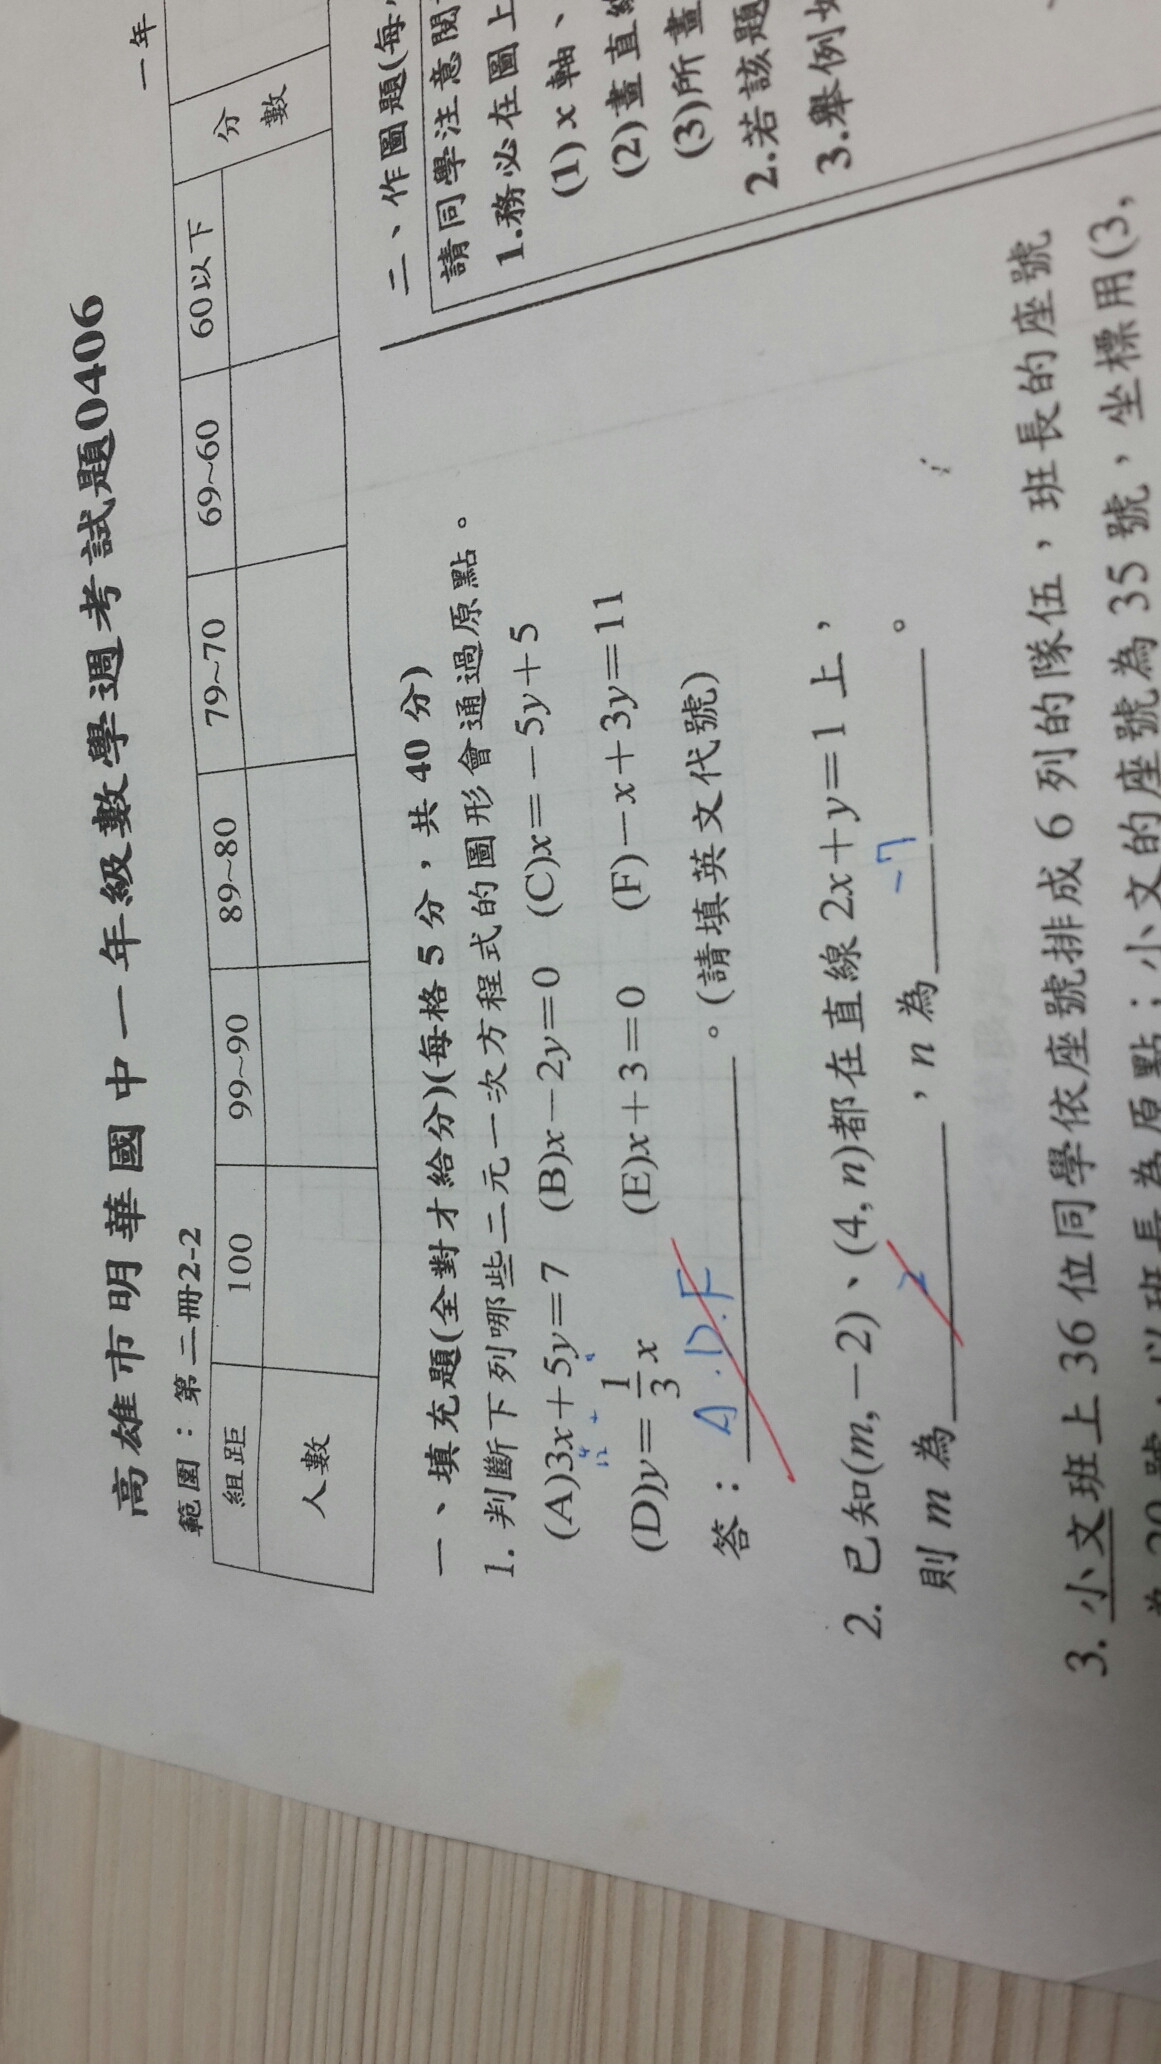 高雄市明華國中一年級數學週考試題0406
一年
範圍：第二冊2-2
組距 100 99~90 89~80 79~70 69~60 60以下 分數
人數
一、填充題(全對才給分)(每格 5 分，共 40 分)
1. 判斷下列哪些二元一次方程式的圖形會通過原點。
(A)3x+5y=7 (B)x-2y=0 (C)x=-5y+5
(D)y=1/3x (E)x+3=0 (F)-x+3y=11
答：A.D.F。(請填英文代號)
2. 已知(m,-2)、(4, n)都在直線 2x+y=1 上，
則 m 為，n 為 -7。
3. 小文班上 36 位同學依座號排成 6 列的隊伍，班長的座號
原點；小文的座號為 35 號，坐標用(3,
二、作圖題(每
請同學注意閱
1.務必在圖上
(1) x 軸、
(2)畫直
(3)所畫
2.若該題
3.舉例